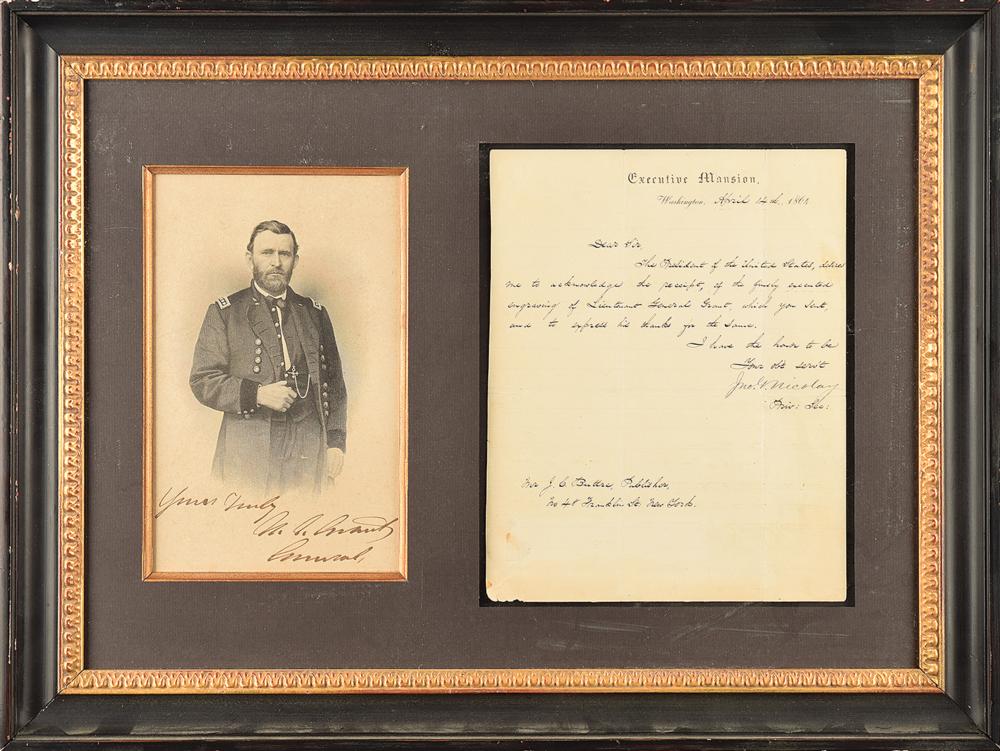 Yours Truly
U. S. Grant
General.
Executive Mansion,
Washington, April 14th, 1864
Dear Sir,
The President of the United States, desires
me to acknowledge the receipt, of the finely executed
engraving of Lieutenant General Grant, which you sent,
and to express his thanks for the same.
I have the honor to be
Your obt servt
Jno. G. Nicolay
Priv: Sec:
Mr J. C. Buttre, Publisher,
No 48 Franklin St. New York.